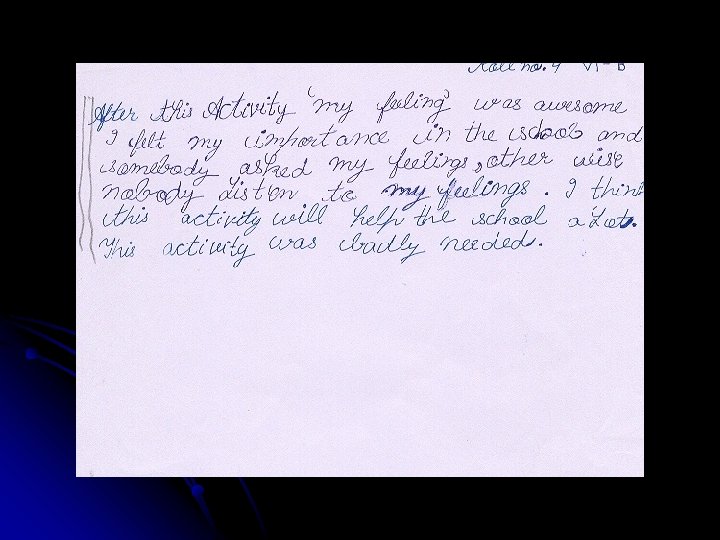 Roll no. 4 VI-B
After this Activity 'my feeling' was awesome
I felt my importance in the school and
somebody asked my feelings, other wise
nobody liston to my feelings. I think
this activity will help the school a lot.
This activity was badly needed.